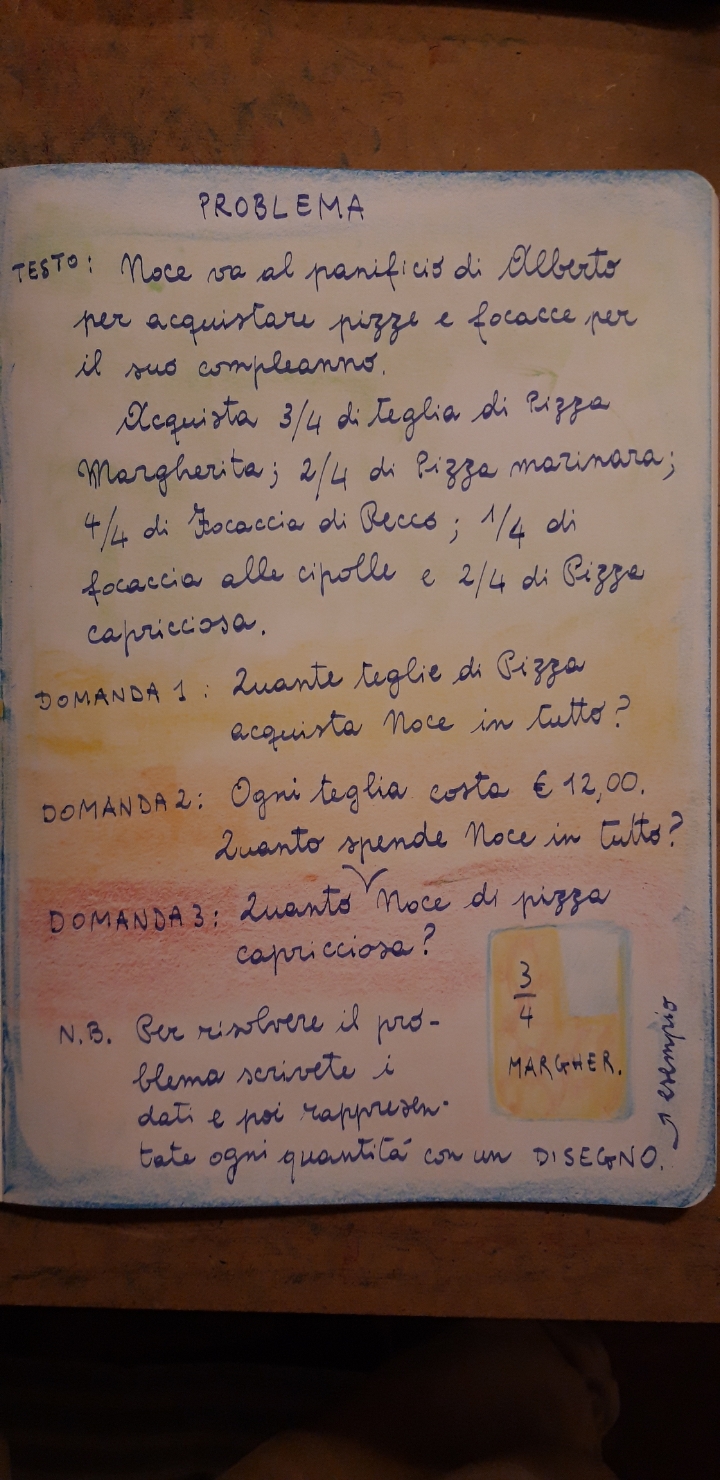 PROBLEMA
TESTO: Noce va al panificio di Alberto
per acquistare pizze e focacce per
il suo compleanno.
Acquista 3/4 di teglia di Pizza
Margherita; 2/4 di Pizza marinara;
4/4 di Focaccia di Recco; 1/4 di
focaccia alle cipolle e 2/4 di Pizza
capricciosa.
DOMANDA 1: Quante teglie di Pizza
acquista Noce in tutto?
DOMANDA 2: Ogni teglia costa € 12,00.
Quanto spende Noce in tutto?
DOMANDA 3: Quanto Noce di pizza
capricciosa?
N.B. Per risolvere il pro-
blema scrivete i
dati e poi rappresen-
tate ogni quantità con un DISEGNO.
3/4
MARGHER.
esempio